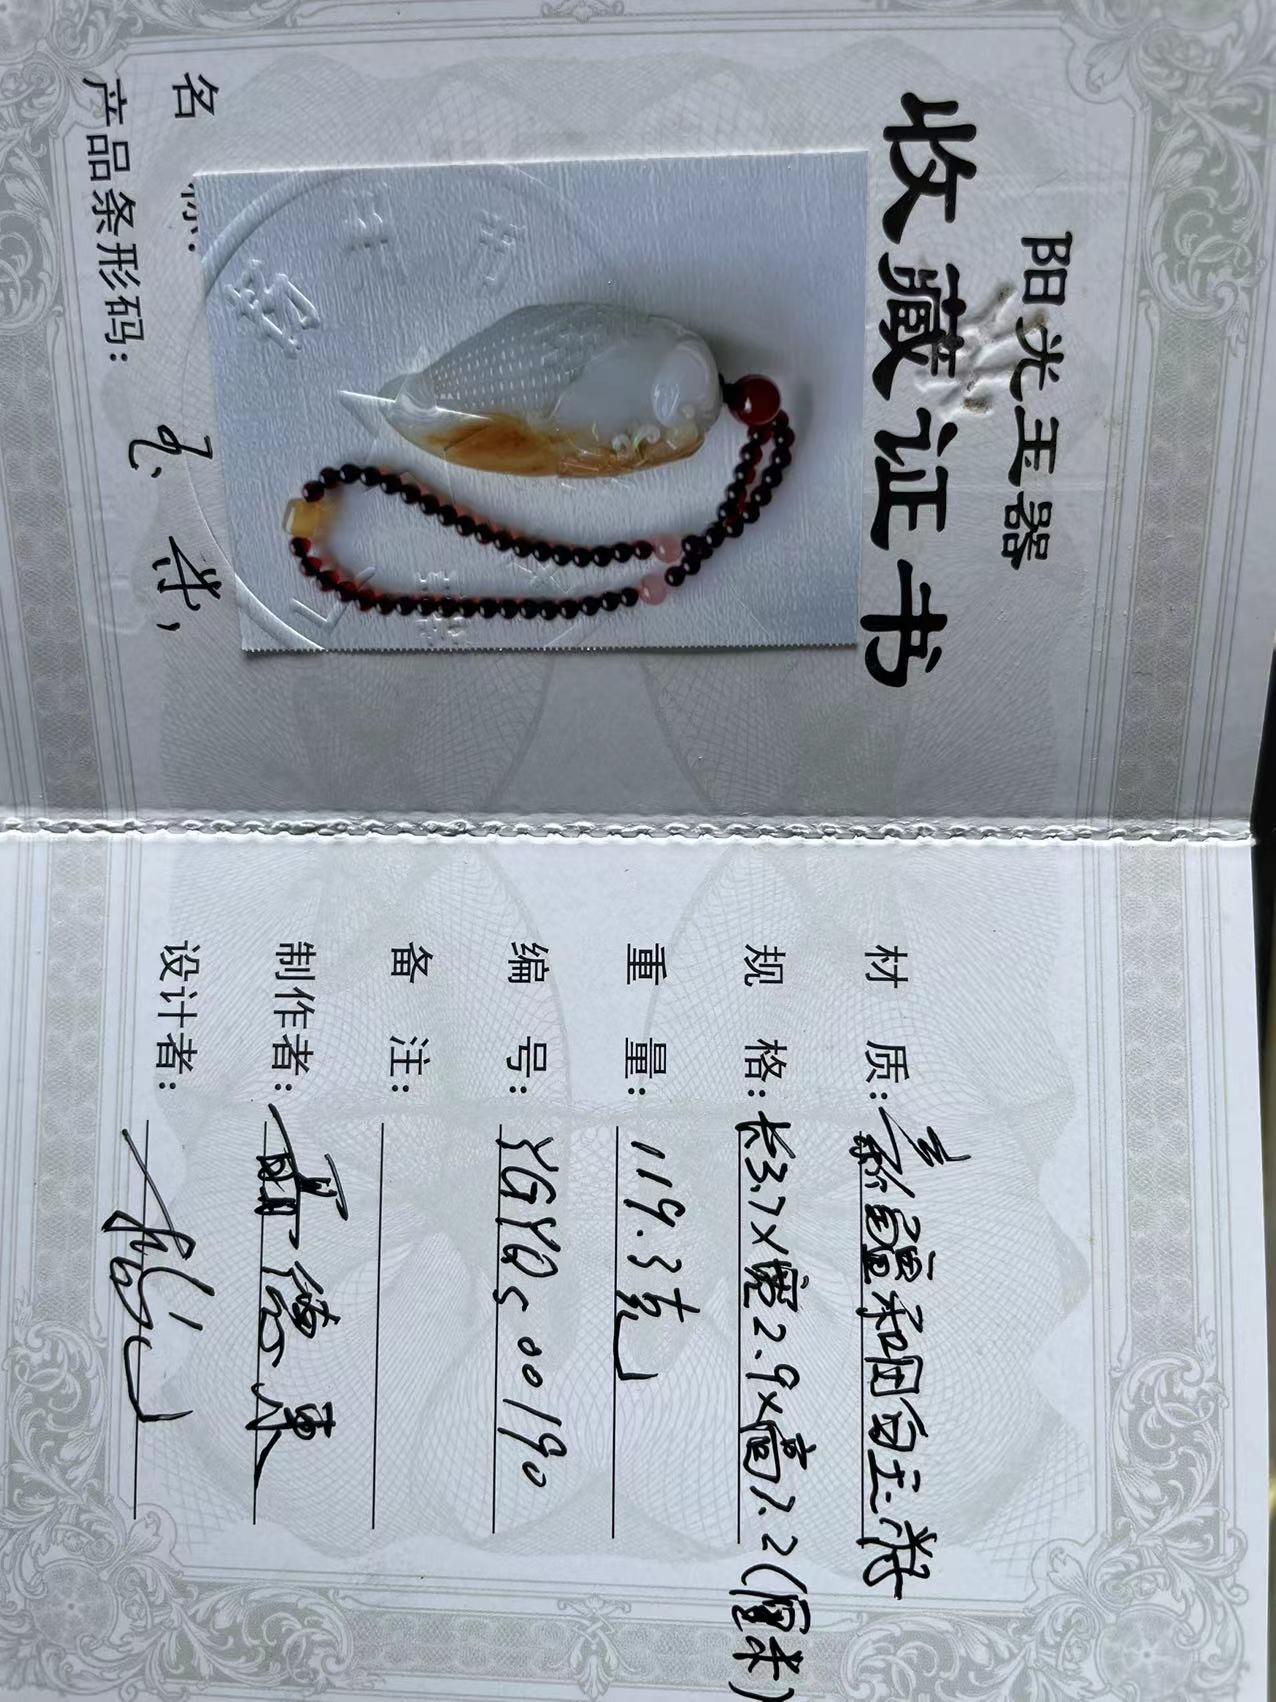 阳光玉器
收藏证书
名 称:
产品条形码:
材 质: 新疆和田白玉籽
规 格: 长3.7x宽2.9x高7.2(厘米)
重 量: 119.3克
编 号: YGYQS00190
备 注:
制作者: 曹德东
设计者: